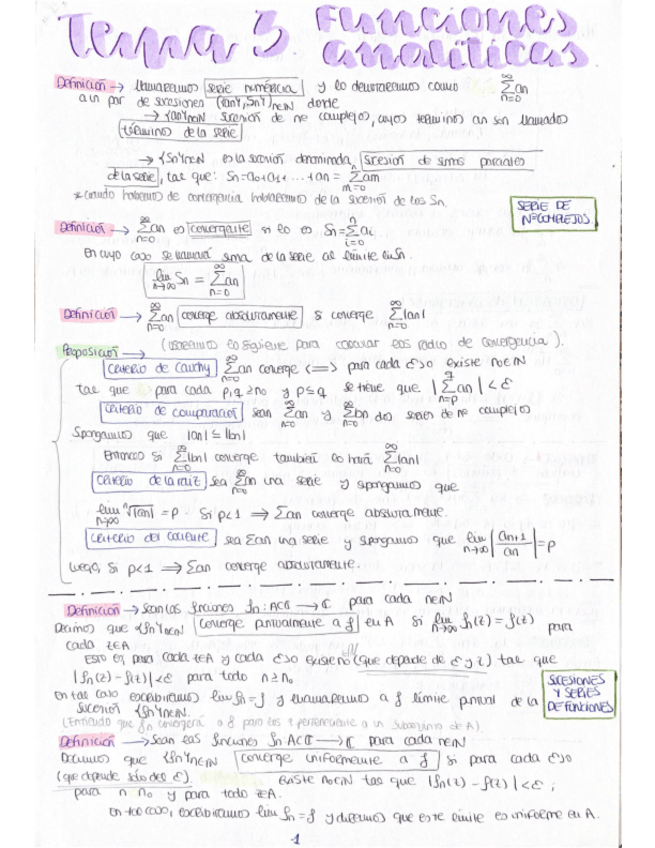 Tema 3. Funciones analíticas.
Definición → llamaremos serie numérica y lo denotaremos como $\sum_{n=0}^{\infty} a_n$
a un par de sucesiones ({an}, Sn)n∈ℕ donde
→ {an}n∈ℕ sucesión de nº complejos, cuyos términos an son llamados
términos de la serie
→ {Sn}n∈ℕ es la sucesión denominada sucesión de sumas parciales
de la serie, tal que: Sn = a0 + a1 + ... + an = $\sum_{m=0}^{n} a_m$
* cuando hablemos de convergencia hablaremos de la sucesión de los Sn.
SERIE DE
Nº COMPLEJOS
Definición → $\sum_{n=0}^{\infty} a_n$ es convergente si lo es Sn = $\sum_{i=0}^{n} a_i$
en cuyo caso se llamará suma de la serie al límite en Sn.
$\lim_{n\to\infty} S_n = \sum_{n=0}^{\infty} a_n$
Definición → $\sum_{n=0}^{\infty} a_n$ converge absolutamente si converge $\sum_{n=0}^{\infty} |a_n|$
Proposición → (usaremos lo siguiente para calcular los radio de convergencia).
criterio de Cauchy $\sum_{n=0}^{\infty} a_n$ converge <=> para cada ε>0 existe n0∈ℕ
tal que para cada p,q ≥ n0 y p ≤ q se tiene que $|\sum_{n=p}^{q} a_n| < ε$
criterio de comparación sean $\sum_{n=0}^{\infty} a_n$ y $\sum_{n=0}^{\infty} b_n$ dos series de nº complejos
Spongamos que |an| ≤ |bn|
Entonces si $\sum_{n=0}^{\infty} |b_n|$ converge también lo hará $\sum_{n=0}^{\infty} |a_n|$
criterio de la raíz sea $\sum_{n=0}^{\infty} a_n$ una serie y spongamos que
$\lim_{n\to\infty} \sqrt[n]{|a_n|} = ρ$. Si ρ<1 ⟹ Σan converge absolutamente.
criterio del cociente sea Σan una serie y spongamos que $\lim_{n\to\infty} \left|\frac{a_{n+1}}{a_n}\right| = ρ$
luego, si ρ<1 ⟹ Σan converge absolutamente.
Definición → sean las funciones fn: A⊂ℂ → ℂ para cada n∈ℕ
Decimos que {fn}n∈ℕ converge puntualmente a f en A si $\lim_{n\to\infty} f_n(z) = f(z)$ para
cada z∈A
Esto es, para cada z∈A y cada ε>0 existe n0∈ℕ (que depende de ε y z) tal que
|fn(z) - f(z)| < ε para todo n ≥ n0.
en tal caso escribiremos lim fn = f y llamaremos a f límite puntual de la
sucesión {fn}n∈ℕ.
SUCESIONES
Y SERIES
DE FUNCIONES
(Entiendo que fn convergerá a f para los z perteneciente a un subconjunto de A).
Definición → Sean las funciones fn: A⊂ℂ → ℂ para cada n∈ℕ
Decimos que {fn}n∈ℕ converge uniformemente a f si para cada ε>0
(que depende sólo de ε) existe n0∈ℕ tal que |fn(z) - f(z)| < ε;
para n n0 y para todo z∈A.
en tal caso, escribiremos lim fn = f y diremos que este límite es uniforme en A.
1